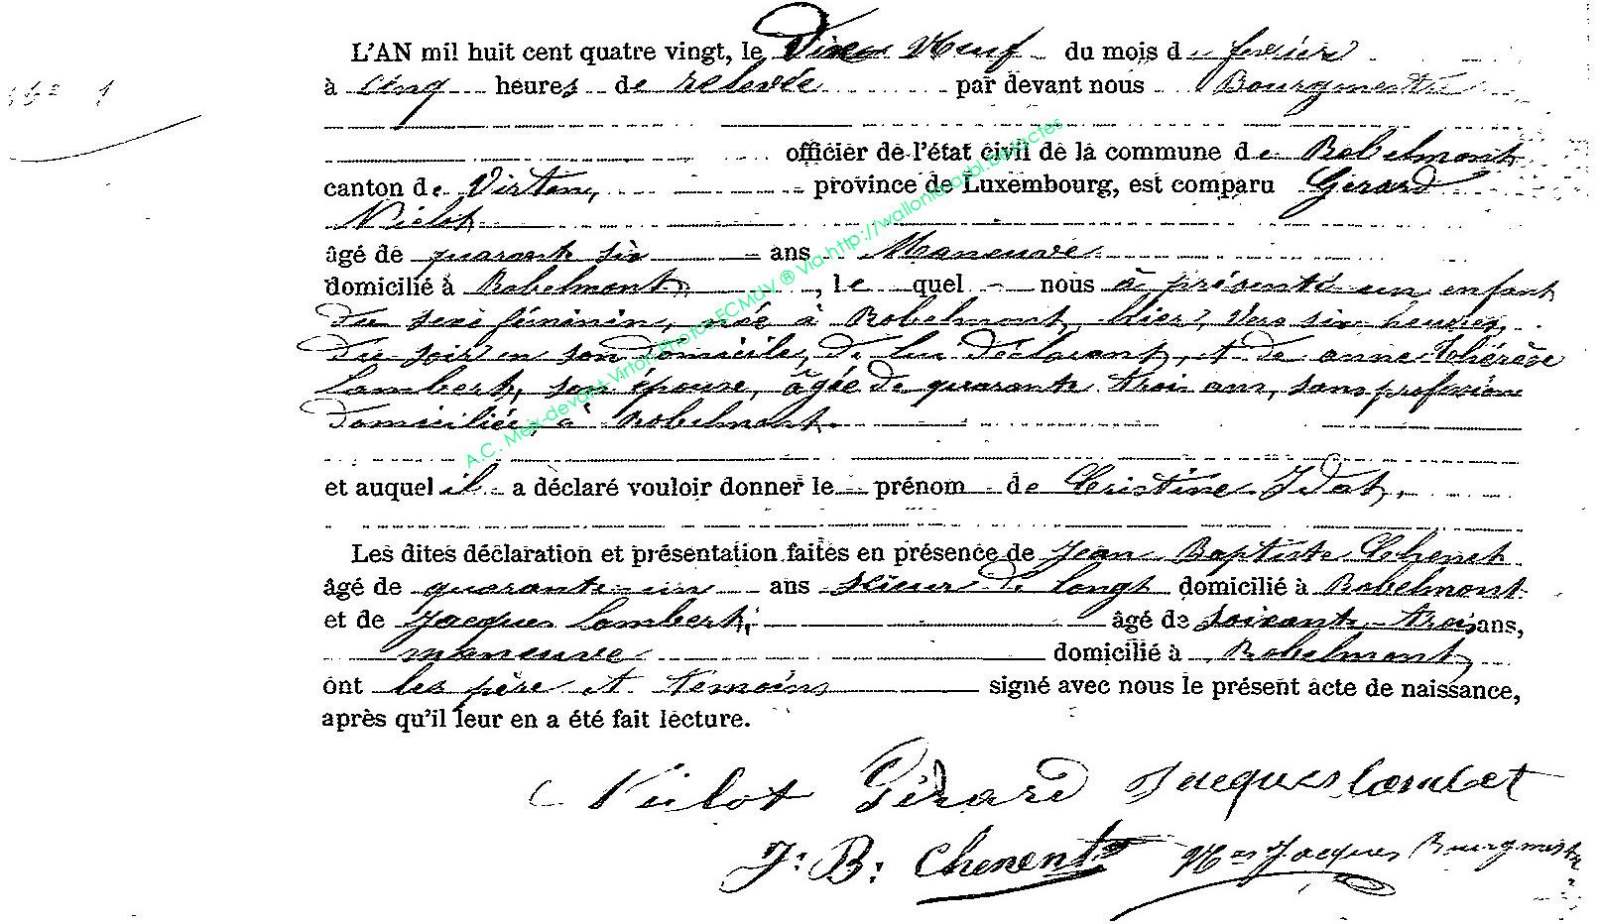 L'AN mil huit cent quatre vingt, le Dix Neuf du mois de fevrier
N° 1
à cinq heures de relevée par devant nous Bourgmestre
officier de l'état civil de la commune de Robelmont
canton de Virton, province de Luxembourg, est comparu Gérard
Nielot
âgé de quarante six ans Maneuvre
domicilié à Robelmont, le quel nous à présenté un enfant
du sexe féminin, née à Robelmont, hier, vers six heures,
du soir en son domicile, de lui déclarant, et de anne Thérèse
Lambert, son épouse, âgée de quarante trois ans, sans profession
domiciliée, à Robelmont.
et auquel il a déclaré vouloir donner le prénom de Cristine
Les dites déclaration et présentation faites en présence de Jean Baptiste Chenet
âgé de quarante un ans scieur de long domicilié à Robelmont
et de Jacques Lambert, âgé de soixante trois ans,
maneuvre domicilié à Robelmont
ont les père et témoins signé avec nous le présent acte de naissance,
après qu'il leur en a été fait lecture.
Gérard Jacques Lambert
J: B: Chenent Jacques Bourgmestre
A.C. Meix-devant-Virton Photos ECMdV ® Via http://walloniaasbl.be/actes